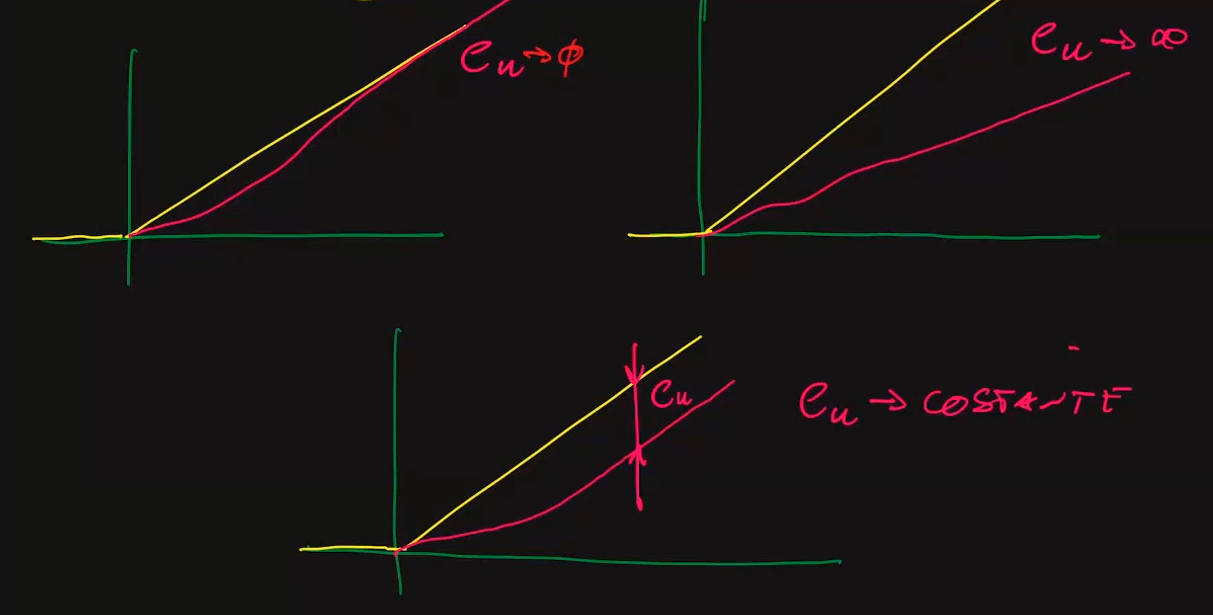 eu → φ
eu → ∞
eu
eu → COSTANTE